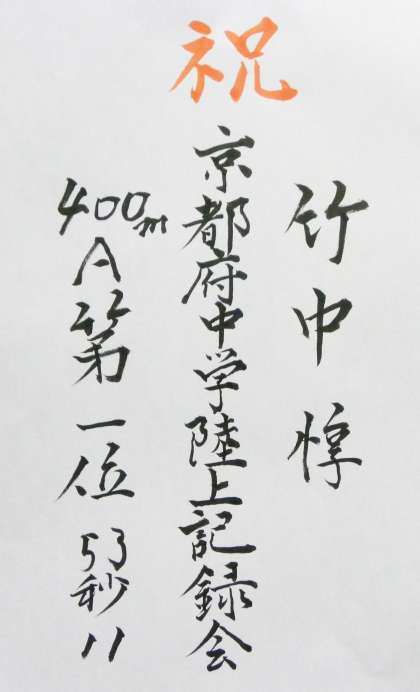 祝
竹中惇
京都府中学陸上記録会
400m A 第一位 53秒11